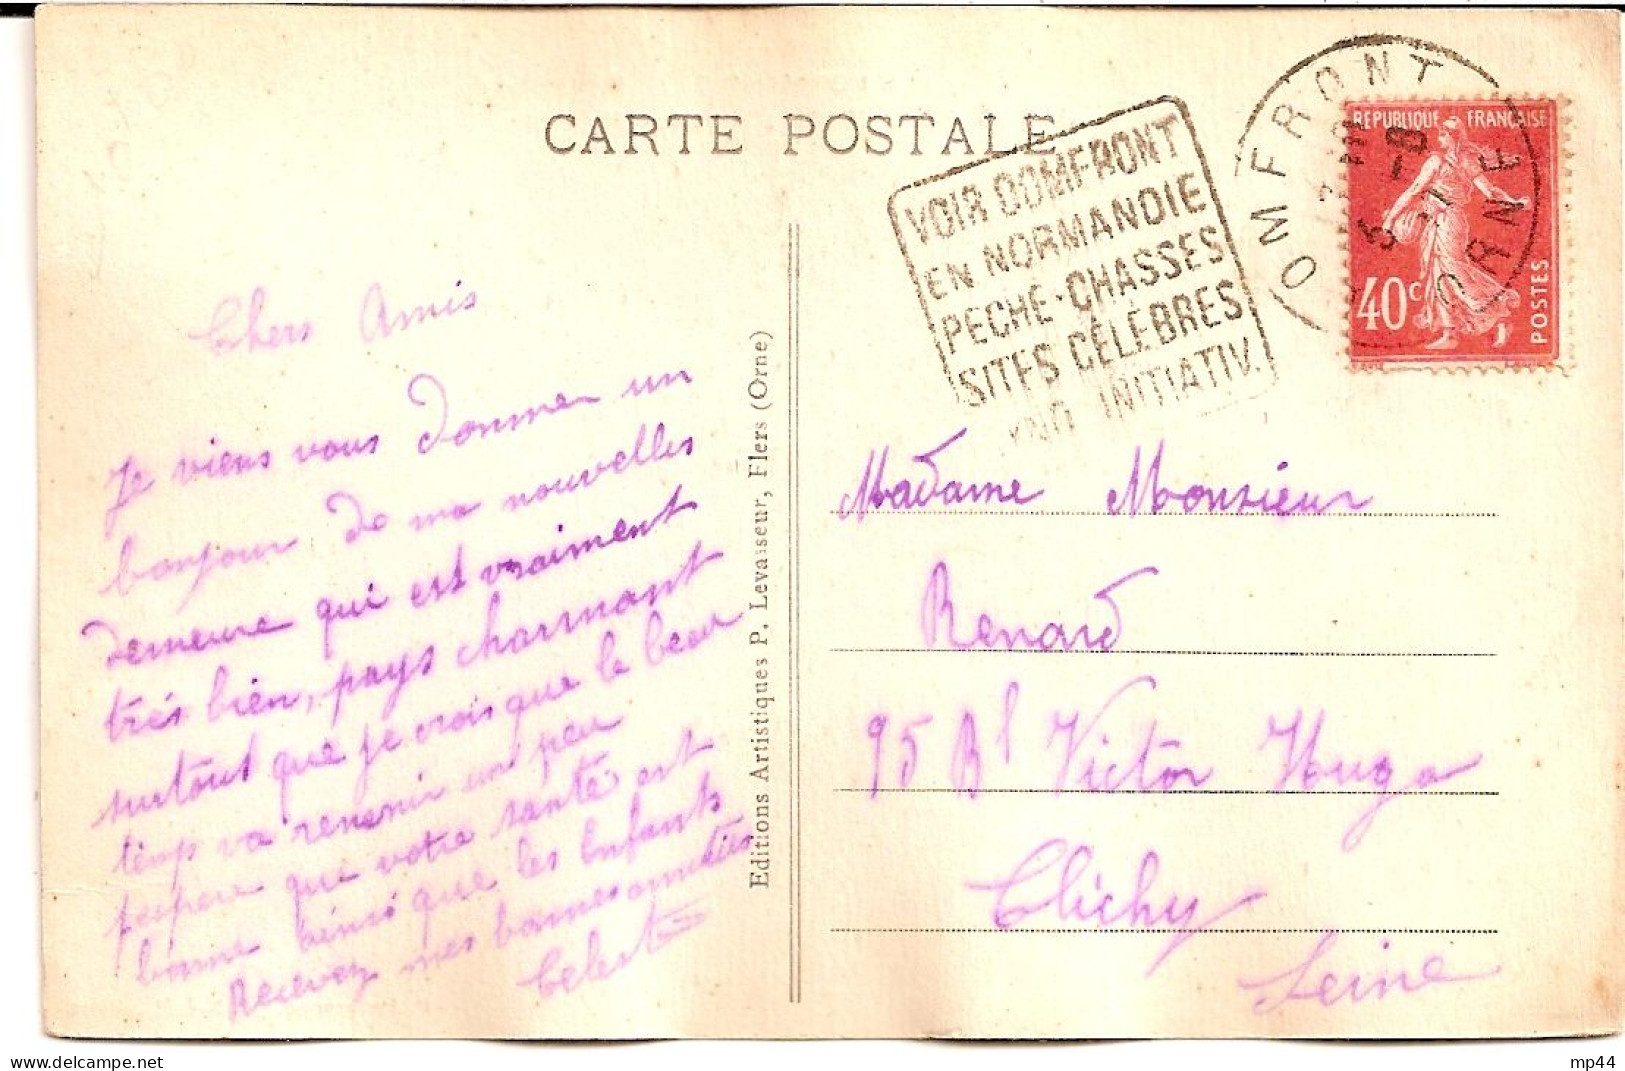 CARTE POSTALE
VOIR DOMFRONT
EN NORMANDIE
PÊCHE-CHASSES
SITES CÉLÈBRES
INITIATIV.
OMFRONT
ORNE
REPUBLIQUE FRANÇAISE
40c
POSTES
Chers Amis
Je viens vous donner un
bonjour de ma nouvelles
demeure qui est vraiment
très bien, pays charmant
surtout que je crois que le beau
temps va revenir un peu
j'espere que votre santé est
bonne ainsi que les Enfants
Recevez mes bonnes amitiés
Celeste
Editions Artistiques P. Levasseur, Flers (Orne)
Madame Monsieur
Renard
95 Bd Victor Hugo
Clichy
Seine
mp44